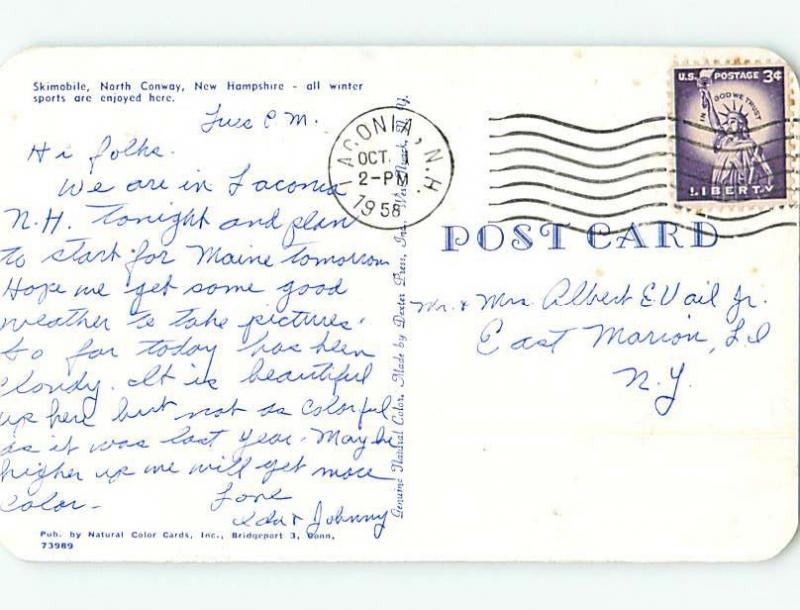 Skimobile, North Conway, New Hampshire - all winter
sports are enjoyed here.
Tues P.M.
Hi folks.
We are in Laconia
N.H. tonight and plan
to start for Maine tomorrow
Hope we get some good
weather to take pictures.
So far today has been
cloudy. It is beautiful
up here but not as colorful
as it was last year. Maybe
higher up we will get more
color.
Love
Ida & Johnny
Pub. by Natural Color Cards, Inc., Bridgeport 3, Conn.
73989
Genuine Natural Color, Made by Dexter Press, Inc. West Nyack, N.Y.
LACONIA, N.H.
OCT. 1
2-PM
1958
U.S. POSTAGE 3¢
IN GOD WE TRUST
LIBERTY
POST CARD
Mr. & Mrs. Albert E Vail Jr.
East Marion, L I
N.Y.